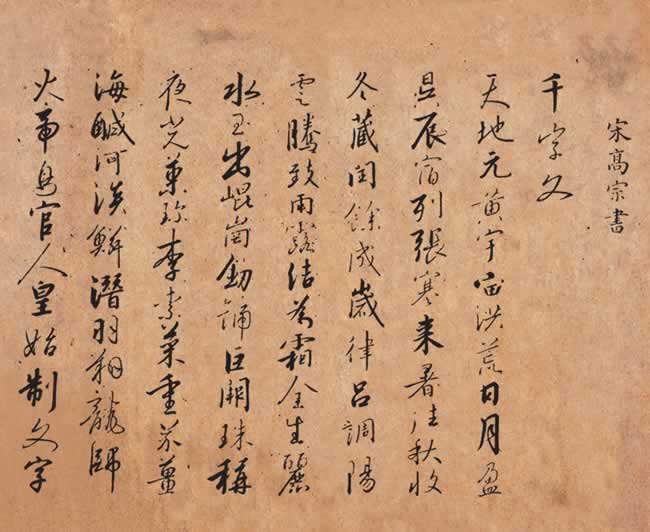 宋高宗書
千字文
天地元黃宇宙洪荒日月盈
昃辰宿列張寒来暑往秋收
冬藏閏餘成歲律呂調陽
雲騰致雨露結為霜金生麗
水玉出崐崗劒號巨闕珠稱
夜光菓珍李柰菜重芥薑
海鹹河淡鱗潛羽翔龍師
火帝鳥官人皇始制文字